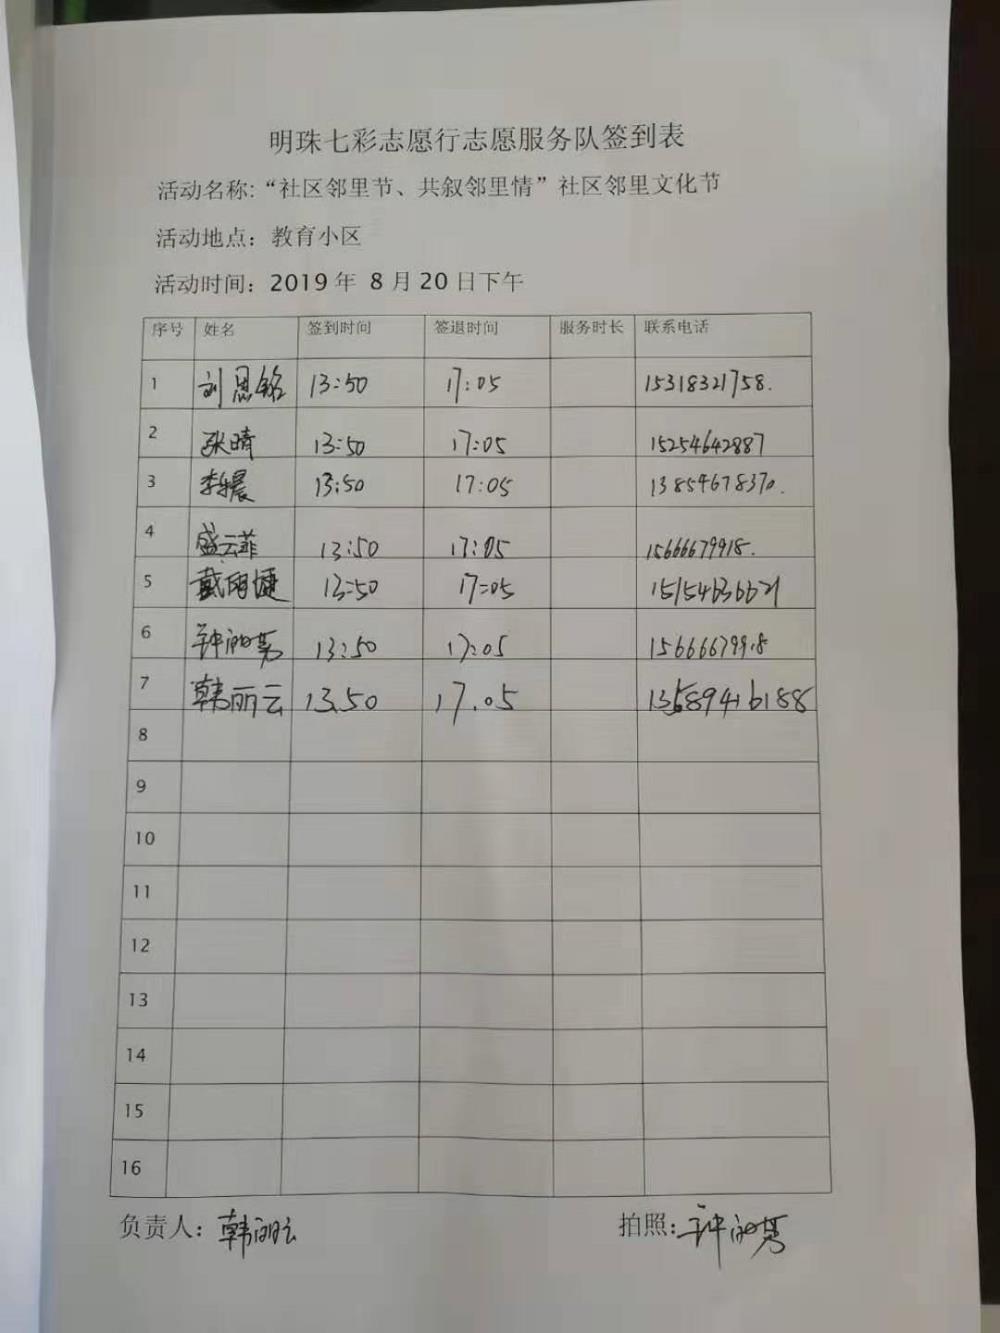 明珠七彩志愿行志愿服务队签到表
活动名称:“社区邻里节、共叙邻里情”社区邻里文化节
活动地点：教育小区
活动时间：2019年 8月20日下午
序号 姓名 签到时间 签退时间 服务时长 联系电话
1 刘恩铭 13:50 17:05 15318321758.
2 张晴 13:50 17:05 15254642887
3 李晨 13:50 17:05 13854678370.
4 盛云菲 13:50 17:05 15666679918.
5 戴 13:50 17:05 15154636621
6 钟 13:50 17:05
7 韩丽云 13.50 17.05
8
9
10
11
12
13
14
15
16
负责人：韩丽云 拍照:钟